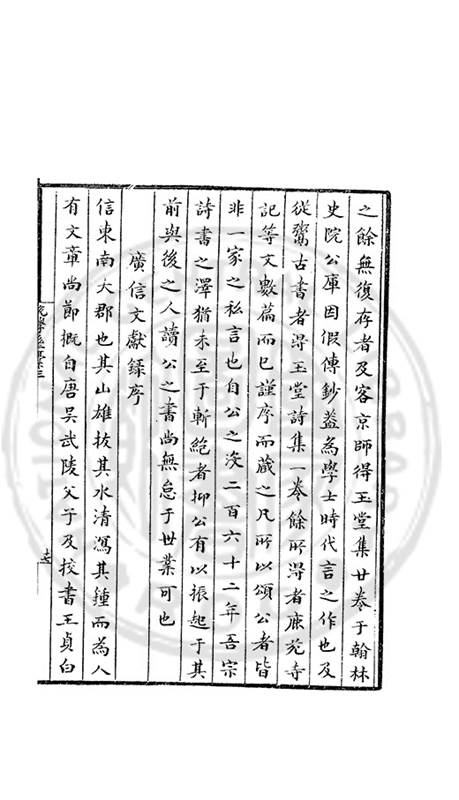 之餘無復存者及客京師得玉堂集廿卷于翰林
史院公庫因假傳鈔葢為學士時代言之作也及
從鬻古書者得玉堂詩集一卷餘所得者鹿苑寺
記等文數篇而已謹序而藏之凡所以頌公者皆
非一家之私言也自公之沒二百六十二年吾宗
詩書之澤猶未至于斬絕者抑公有以振起于其
前與後之人讀公之書尚無怠于世業可也
廣信文獻錄序
信東南大郡也其山雄拔其水清瀉其鍾而為人
有文章尚節概自唐吴武陵父子及挍書王貞白